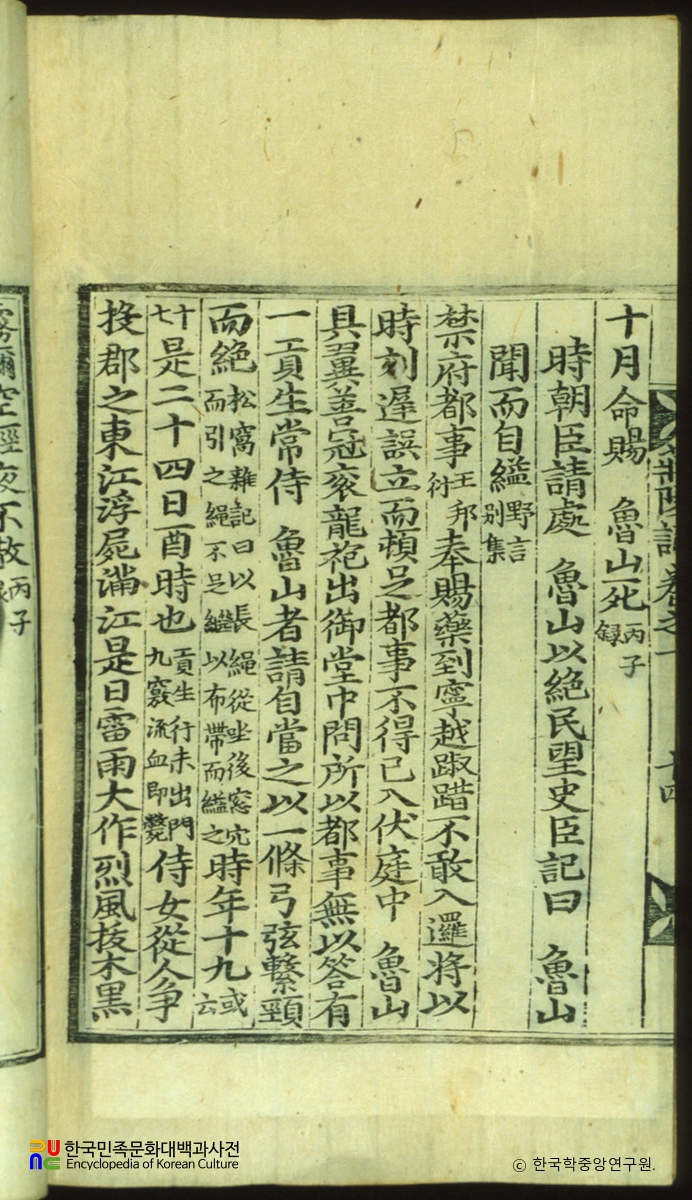 莊陵誌 卷之一 十四
十月命賜 魯山死丙子錄
時朝臣請處 魯山以絶民望史臣記曰 魯山
聞而自縊野言別集
禁府都事王邦衍奉賜藥到寧越踧踖不敢入邏將以
時刻遲誤立而頓足都事不得已入伏庭中 魯山
具翼善冠衮龍袍出御堂中問所以都事無以答有
一貢生常侍 魯山者請自當之以一條弓弦繫頸
而絶松窩雜記曰以長繩從坐後窓穴而引之繩不足繼以布帶而縊之時年十九或云
十七是二十四日酉時也貢生行未出門九竅流血即斃侍女從人争
投郡之東江浮屍滿江是日雷雨大作烈風拔木黑
霧彌空經夜不散丙子
한국민족문화대백과사전
Encyclopedia of Korean Culture
ⓒ 한국학중앙연구원.